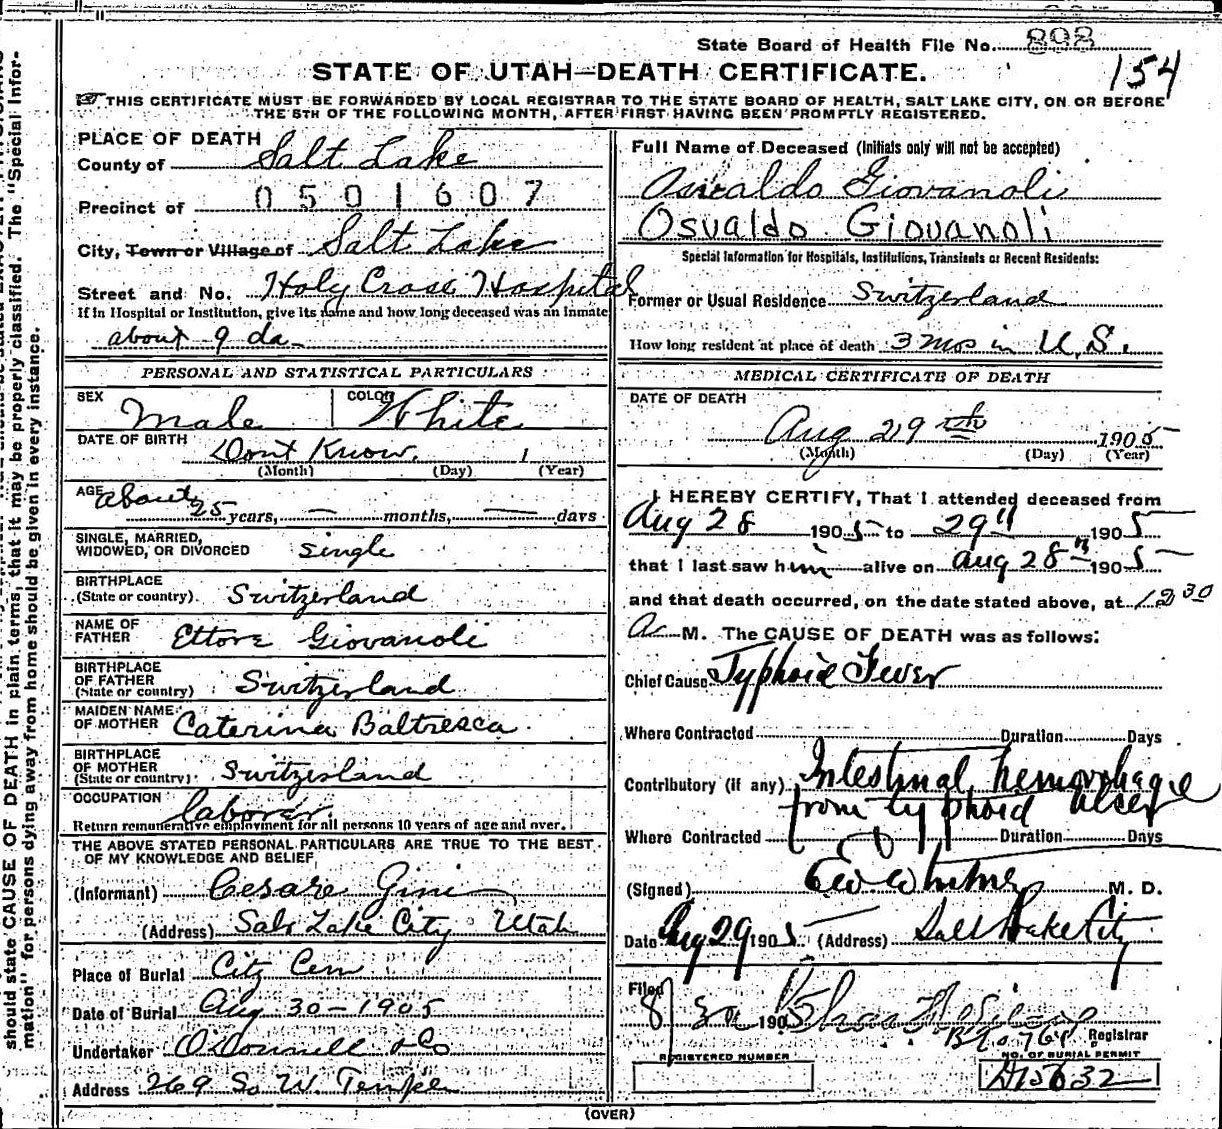 State Board of Health File No. 898
154
STATE OF UTAH—DEATH CERTIFICATE.
THIS CERTIFICATE MUST BE FORWARDED BY LOCAL REGISTRAR TO THE STATE BOARD OF HEALTH, SALT LAKE CITY, ON OR BEFORE
THE 5TH OF THE FOLLOWING MONTH, AFTER FIRST HAVING BEEN PROMPTLY REGISTERED.
PLACE OF DEATH
County of Salt Lake
0501607
Precinct of
City, Town or Village of Salt Lake
Street and No. Holy Cross Hospital
If in Hospital or Institution, give its name and how long deceased was an Inmate
about 9 da-
PERSONAL AND STATISTICAL PARTICULARS
SEX Male COLOR White
DATE OF BIRTH Dont Know.
(Month) (Day) (Year)
AGE about 25 years, — months, — days
SINGLE, MARRIED, WIDOWED, OR DIVORCED single
BIRTHPLACE (State or country) Switzerland
NAME OF FATHER Ettore Giovanoli
BIRTHPLACE OF FATHER (State or country) Switzerland
MAIDEN NAME OF MOTHER Caterina Baltresca
BIRTHPLACE OF MOTHER (State or country) Switzerland
OCCUPATION laborer.
Return remunerative employment for all persons 10 years of age and over.
THE ABOVE STATED PERSONAL PARTICULARS ARE TRUE TO THE BEST
OF MY KNOWLEDGE AND BELIEF
(Informant) Cesare Gini
(Address) Salt Lake City Utah
Place of Burial City Cem
Date of Burial Aug 30-1905
Undertaker O'Donnell & Co
Address 269 So W. Temple
Full Name of Deceased (Initials only will not be accepted)
Osvaldo Giovanoli
Osvaldo Giovanoli
Special Information for Hospitals, Institutions, Transients or Recent Residents:
Former or Usual Residence Switzerland
How long resident at place of death 3 mos in U.S.
MEDICAL CERTIFICATE OF DEATH
DATE OF DEATH
Aug 29th 1905
(Month) (Day) (Year)
I HEREBY CERTIFY, That I attended deceased from
Aug 28 1905 to 29" 1905
that I last saw him alive on Aug 28th 1905
and that death occurred, on the date stated above, at 12 30
A M. The CAUSE OF DEATH was as follows:
Chief Cause Typhoid Fever
Where Contracted Duration Days
Contributory (if any) Intestinal hemorrhage
from typhoid ulcer
Where Contracted Duration Days
(Signed) M. D.
Date Aug 29 1905 (Address) Salt Lake City
Filed 8/30 1905 Registrar
REGISTERED NUMBER
NO. OF BURIAL PERMIT
D15632
(OVER)
should state CAUSE OF DEATH in plain terms, that it may be properly classified. The "Special Infor-
mation" for persons dying away from home should be given in every instance.